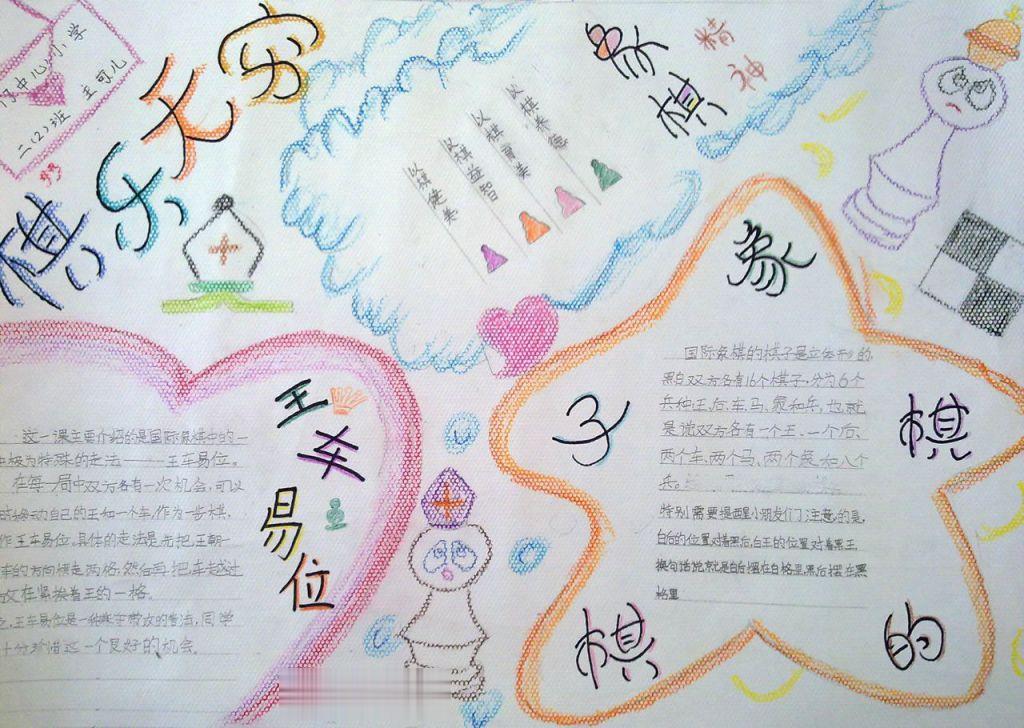 中心小学
二(2)班
王可儿
棋乐无穷
象棋
精神
以棋健美
以棋益智
以棋育美
以棋养德
王车易位
这一课主要介绍的是国际象棋中的一
极为特殊的走法——王车易位。
在每一局中双方各有一次机会,可以
移动自己的王和一个车,作为一步棋,
作王车易位。具体的走法是先把王朝
车的方向横走两格,然后再把车越过
放在紧挨着王的一格。
王车易位是一种
的着法,同学
十分珍惜这一个良好的机会。
象棋的棋子
国际象棋的棋子是立体形的
黑白双方各有16个棋子,分为6个
兵种王、后、车、马、象和兵,也就
是说双方各有一个王、一个后、
两个车、两个马、两个象和八个
兵。
特别需要提醒小朋友们注意的是,
白后的位置对着黑后,白王的位置对着黑王
换句话说就是白后摆在白格里,黑后摆在黑
格里